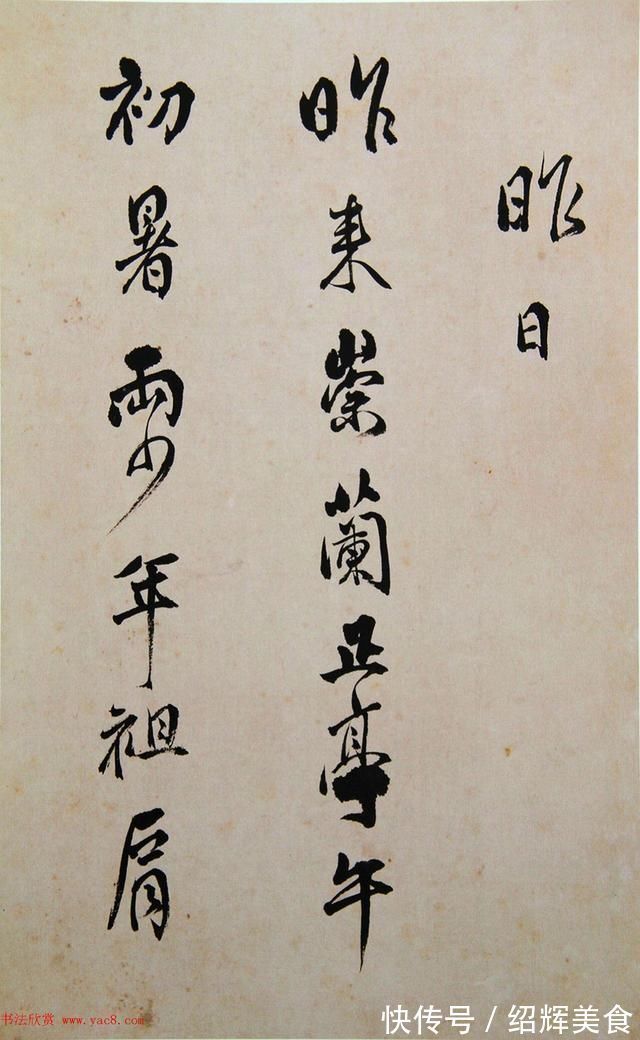 昨日
昨来崇蘭正亭午
初暑兩少年袒肩
书法欣赏 www.yac8.com
快传号 / 绍辉美食